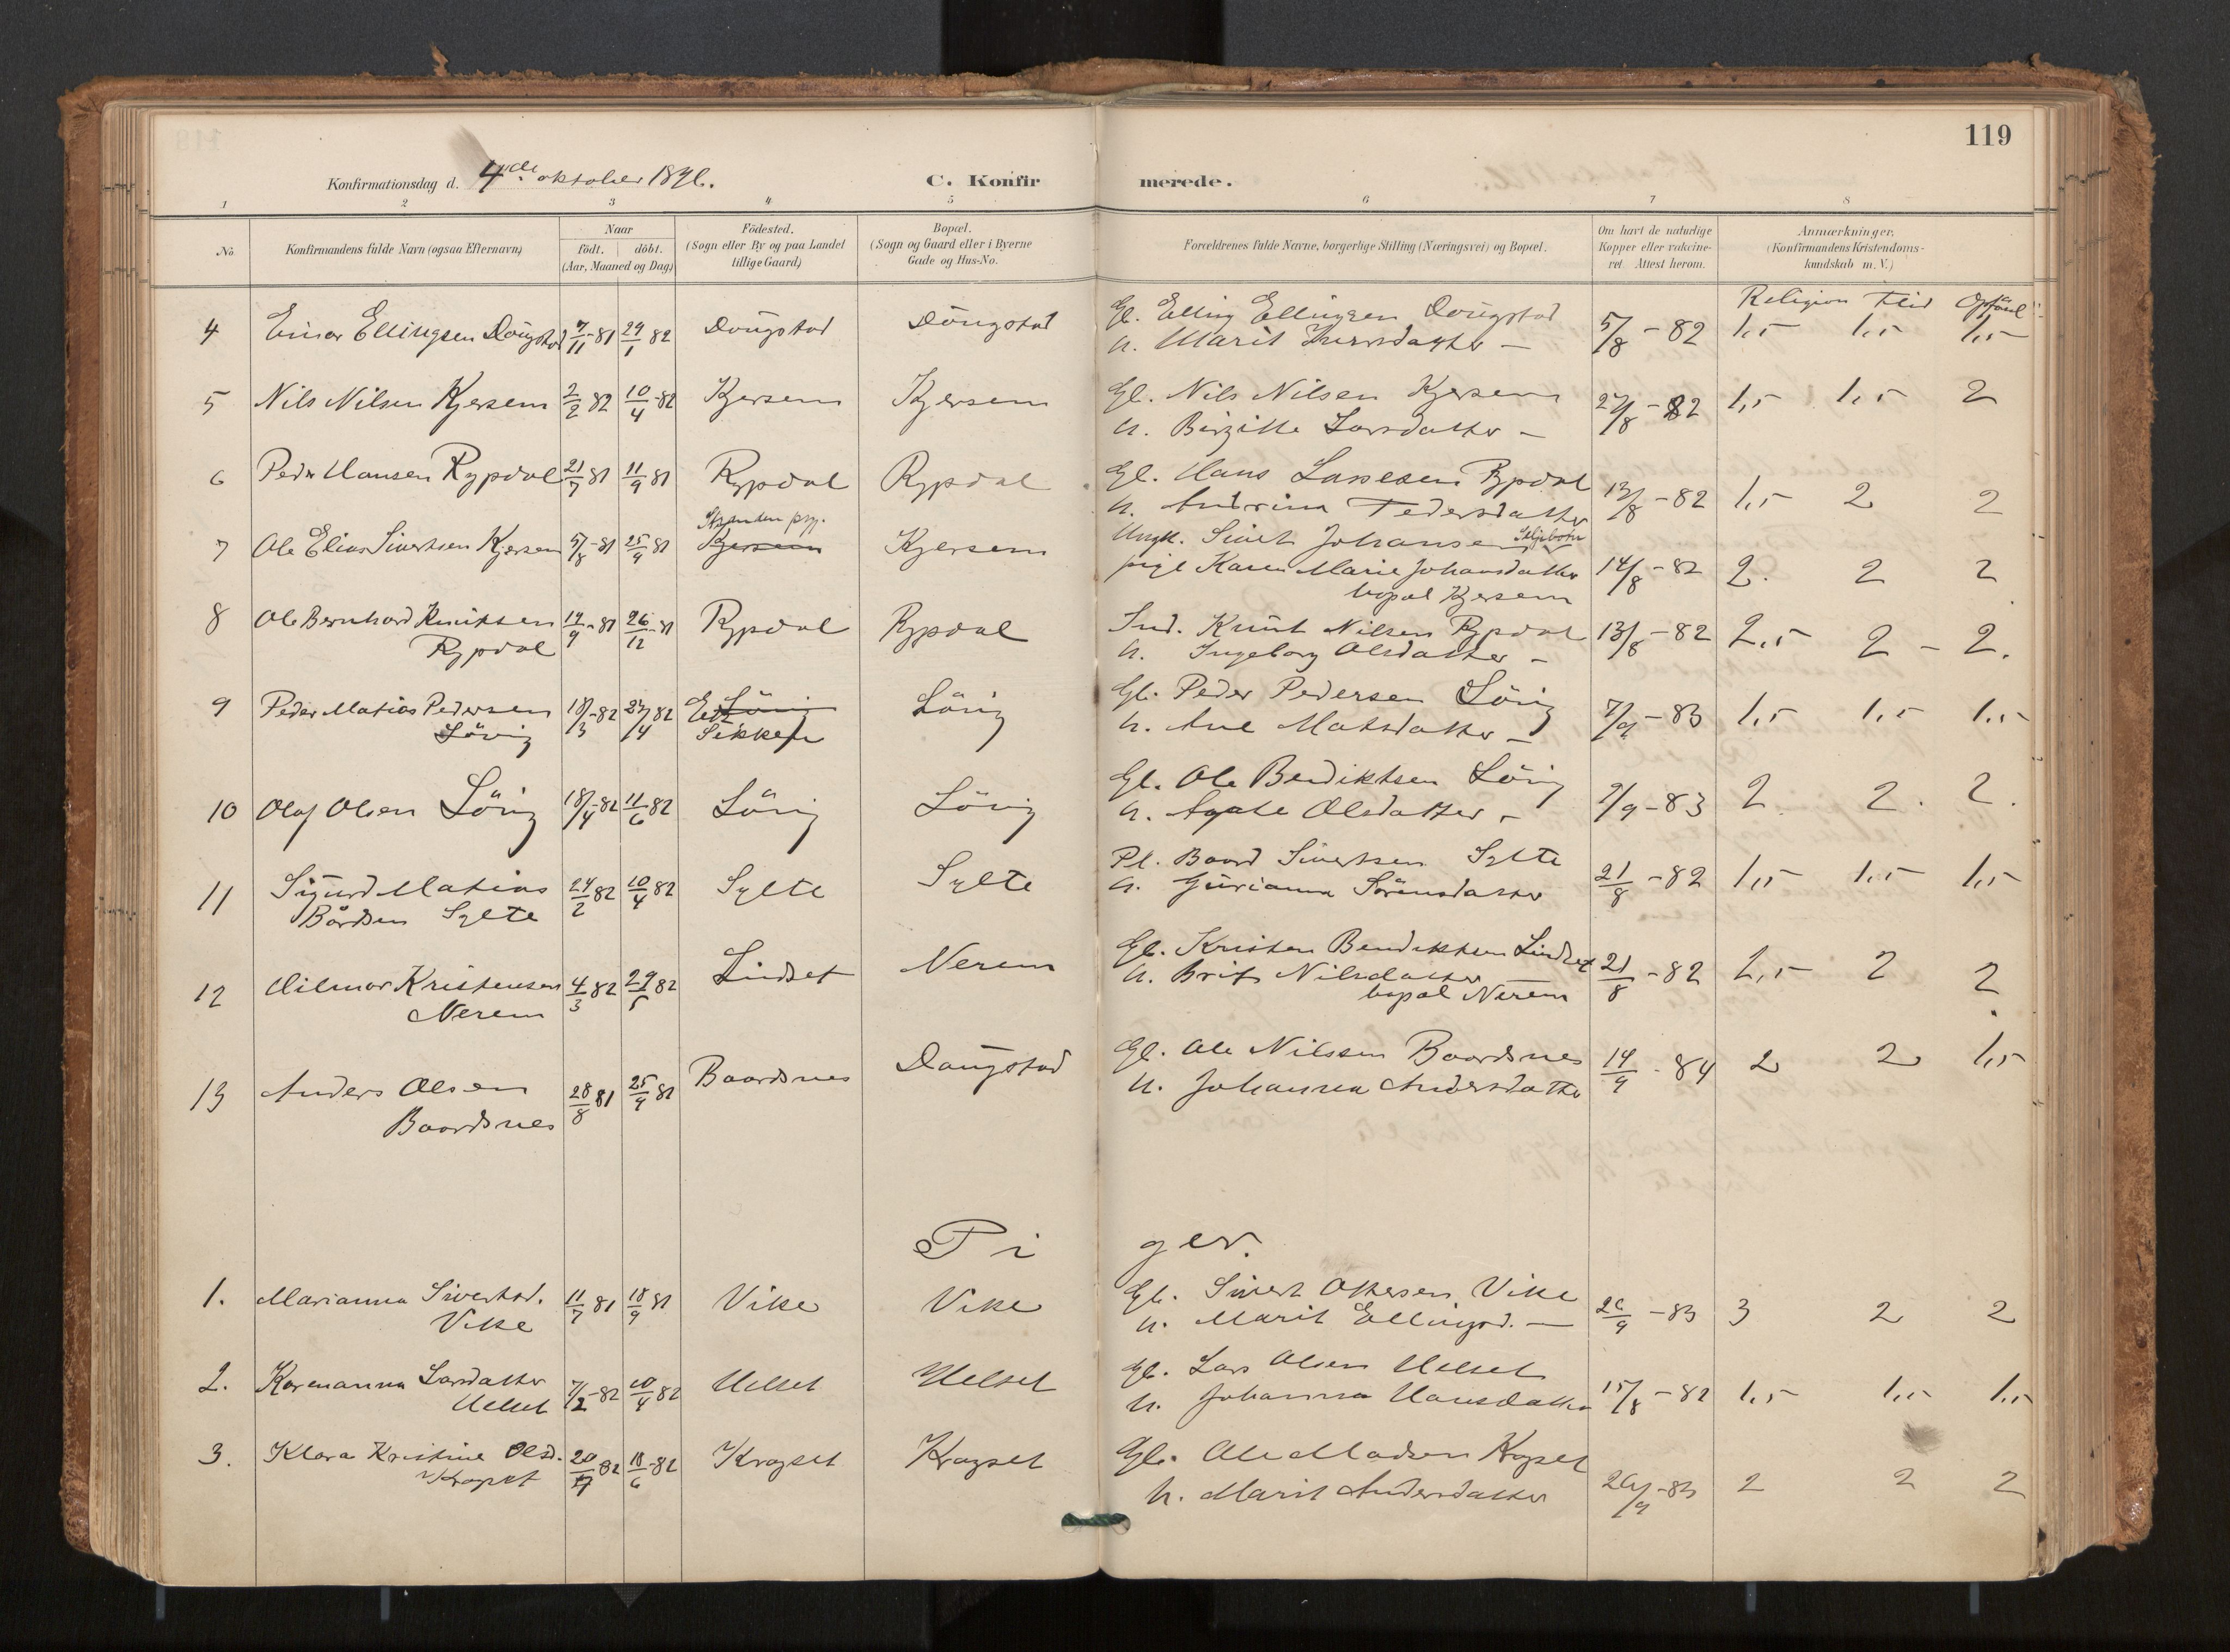 119
Konfirmationsdag d. 4de oktober 1896. C. Konfirmerede.
1 2 3 4 5 6 7 8
No. Konfirmandens fulde Navn (ogsaa Efternavn) Naar født. døbt. (Aar, Maaned og Dag) Fødested. (Sogn eller By og paa Landet tillige Gaard) Bopæl. (Sogn og Gaard eller i Byerne Gade og Hus-No. Forældrenes fulde Navne, borgerlige Stilling (Næringsvei) og Bopæl. Om havt de naturlige Kopper eller vakcineret. Attest herom. Anmærkninger. (Konfirmandens Kristendomskundskab m. V.)
Religion Flid Opførsel
4 Einar Ellingsen Dougstad 7/11-81 29/1 82 Dougstad Dougstad Gl. Elling Ellingsen Dougstad 5/8-82 1,5 1,5 1,5
h. Marit Iversdatter —
5 Nils Nilsen Kjersem 2/2 82 10/4-82 Kjersem Kjersem Gl. Nils Nilsen Kjersem 27/8-82 1,5 1,5 2
h. Birgitte Larsdatter —
6 Peder Hansen Rypdal 21/7 81 11/9 81 Rypdal Rypdal Gl. Hans Lassesen Rypdal 13/8-82 1,5 2 2
h. Andrina Pedersdatter
7 Ole Elias Sivertsen Kjersem 5/8-81 25/9 81 Kjersem Kjersem Ungk. Sivert Johansen Seljebotn
pige Karen Marie Johansdatter 14/8-82 2. 2 2
bopæl Kjersem
8 Ole Bernhard Knutsen 14/9-81 26/12-81 Rypdal Rypdal Ind. Knut Nilsen Rypdal 13/8-82 2,5 2 - 2.
Rypdal h. Ingeborg Olsdatter —
9 Peder Matias Pedersen 18/3-82 23/4 82 Løvig Gl. Peder Pedersen Løvig 7/9-83 1,5 1,5 1,5
Løvig Sekken h. Ane Matsdatter —
10 Olaf Olsen Løvig 18/4-82 11/6 82 Løvig Løvig Gl. Ole Bendiktsen Løvig 7/9-83 2 2. 2.
h. Agate Olsdatter -
11 Sigurd Matias 24/2 82 10/4 82 Sylte Sylte Pl. Baard Sivertsen Sylte 21/8-82 1,5 1,5 1,5
Bårdsen Sylte h. Gurianna Sørensdatter
12 Hilmar Kristensen 4/3 82 29/5 82 Lindset Nerem Gl. Kristen Bendiktsen Lindset 21/8-82 2,5 2 2
Nerem h. Brit Nilsdatter
bopæl Nerem
13 Anders Olsen 28/8 81 25/9 81 Baardsnes Dougstad Gl. Ole Nilssen Baardsnes 14/9-84 2 2 1,5
Baardsnes h. Johanna Andersdatter
Piger.
1. Marianna Sivertsd. 11/7 81 18/9 81 Vike Vike Gl. Sivert Ottersen Vike 26/9-83 3 2 2
Vike h. Marit Ellingsd. —
2. Karenanna Larsdatter 7/2-82 10/4 82 Helset Helset Gl. Lars Olsen Helset
Helset h. Johanna Hansdatter 15/8-82 1,5 1,5 1,5
3. Klara Kristine Olsd. 20/4 82 18/6-82 Kragset Kragset Gl. Ole Madsen Kragset
Kragset h. Marit Andersdatter 26/9-83 2 2 2